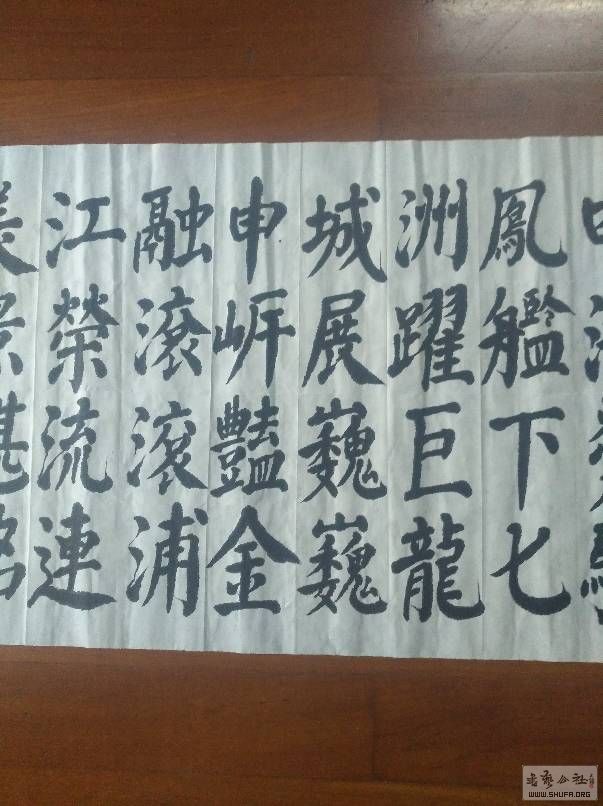 鳳艦下七
洲躍巨龍
城展巍巍
申岍豔金
融滾滾浦
江榮流連
书艺公社
WWW.SHUFA.ORG